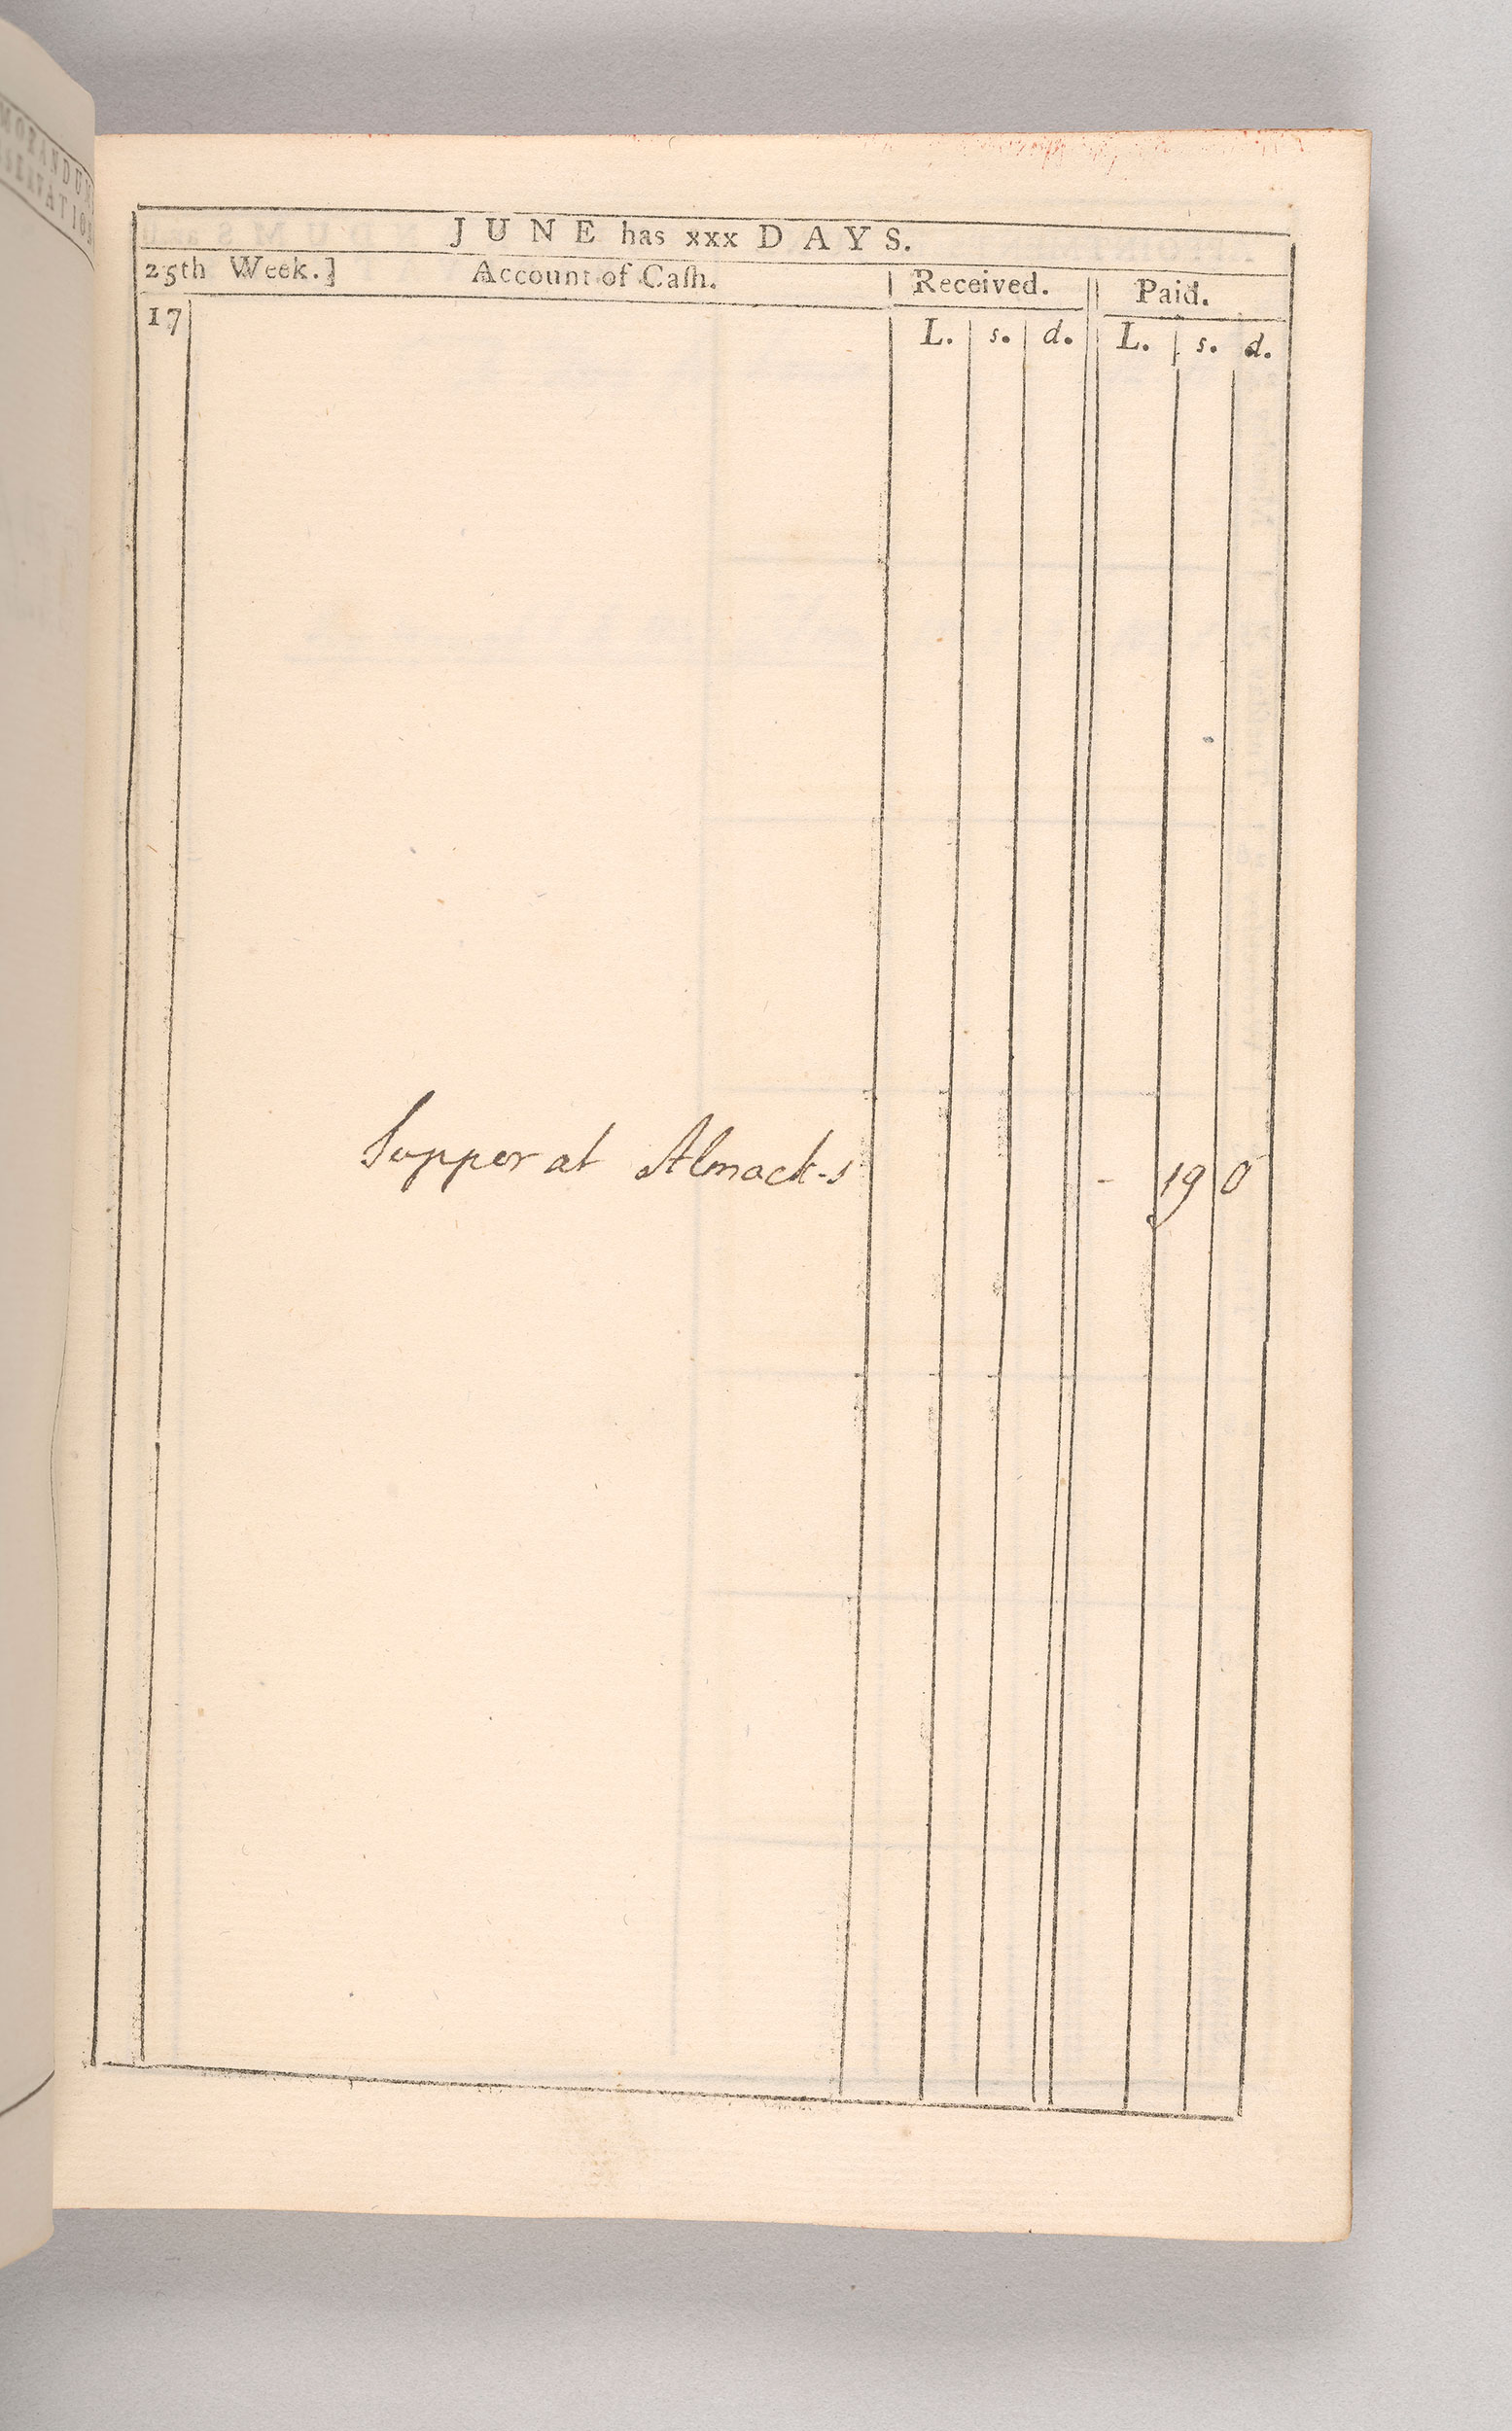 MORANDUM
SERVATION
JUNE has xxx DAYS.
25th Week.] Account of Caſh. Received. Paid.
17 L. s. d. L. s. d.
Supper at Almack-s - 19 0